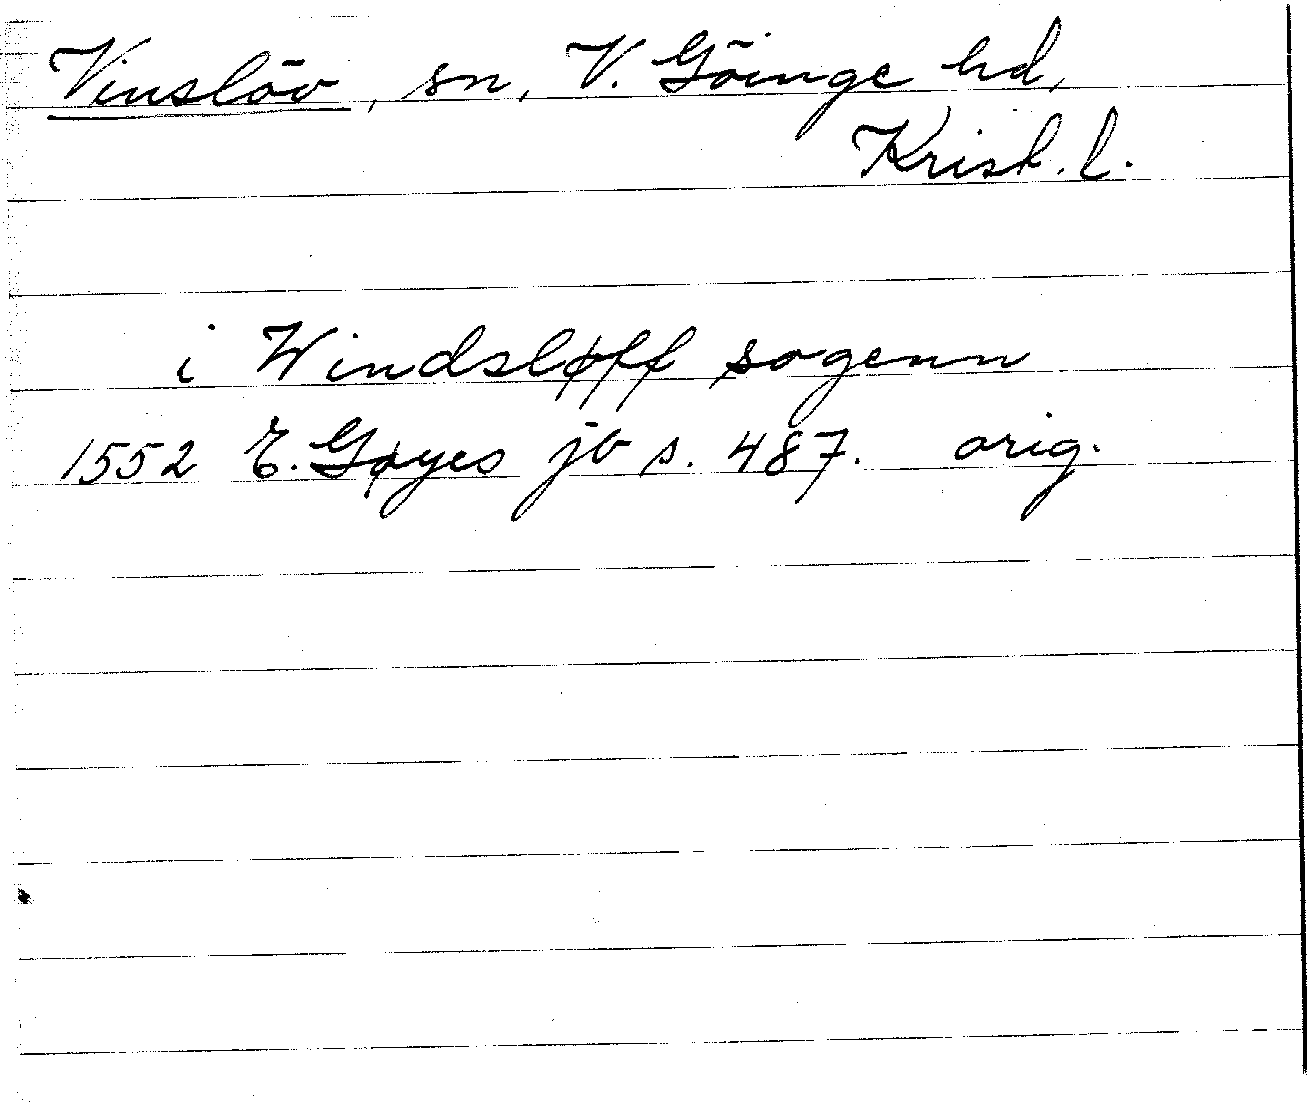 Vinslöv, sn, V. Göinge hd,
Krist. l.
i Windsløff sogenn
1552 E. Gøyes jb s. 487. orig.